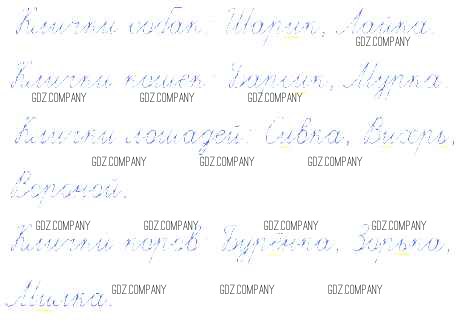 Клички собак: Шарик, Лайка.
GDZ.COMPANY
Клички кошек: Барсик, Мурка.
GDZ.COMPANY GDZ.COMPANY GDZ.COMPANY
Клички лошадей: Сивка, Вихрь,
GDZ.COMPANY GDZ.COMPANY GDZ.COMPANY
Вороной.
GDZ.COMPANY GDZ.COMPANY GDZ.COMPANY GDZ.COMPANY
Клички коров: Бурёнка, Зорька,
Милка.
GDZ.COMPANY GDZ.COMPANY GDZ.COMPANY